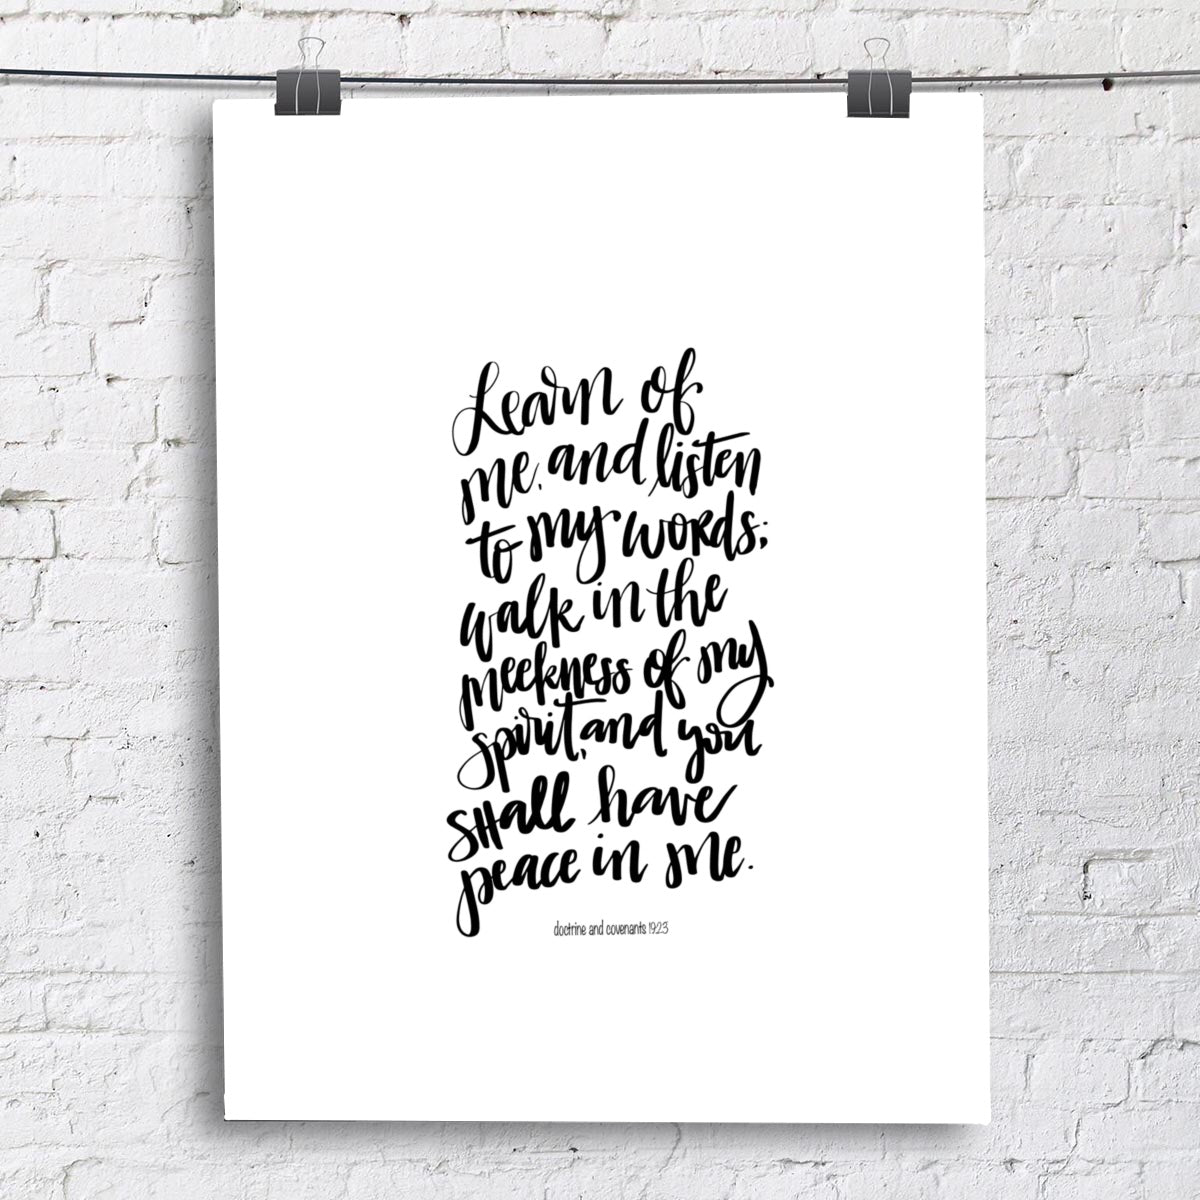 Learn of
me, and listen
to my words;
walk in the
meekness of my
spirit, and you
sHall have
peace in me.
doctrine and covenants 19:23